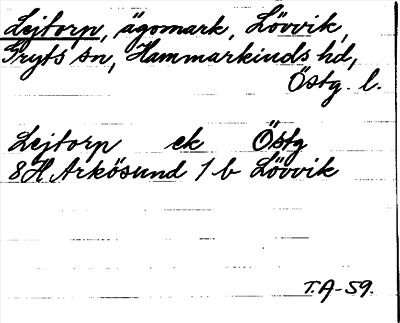 Lejtorp, ägomark, Lövvik,
Gryts sn, Hammarkinds hd,
Östg. l.
Lejtorp ek Östg
8H Arkösund 1 b Lövvik
T.A-59.